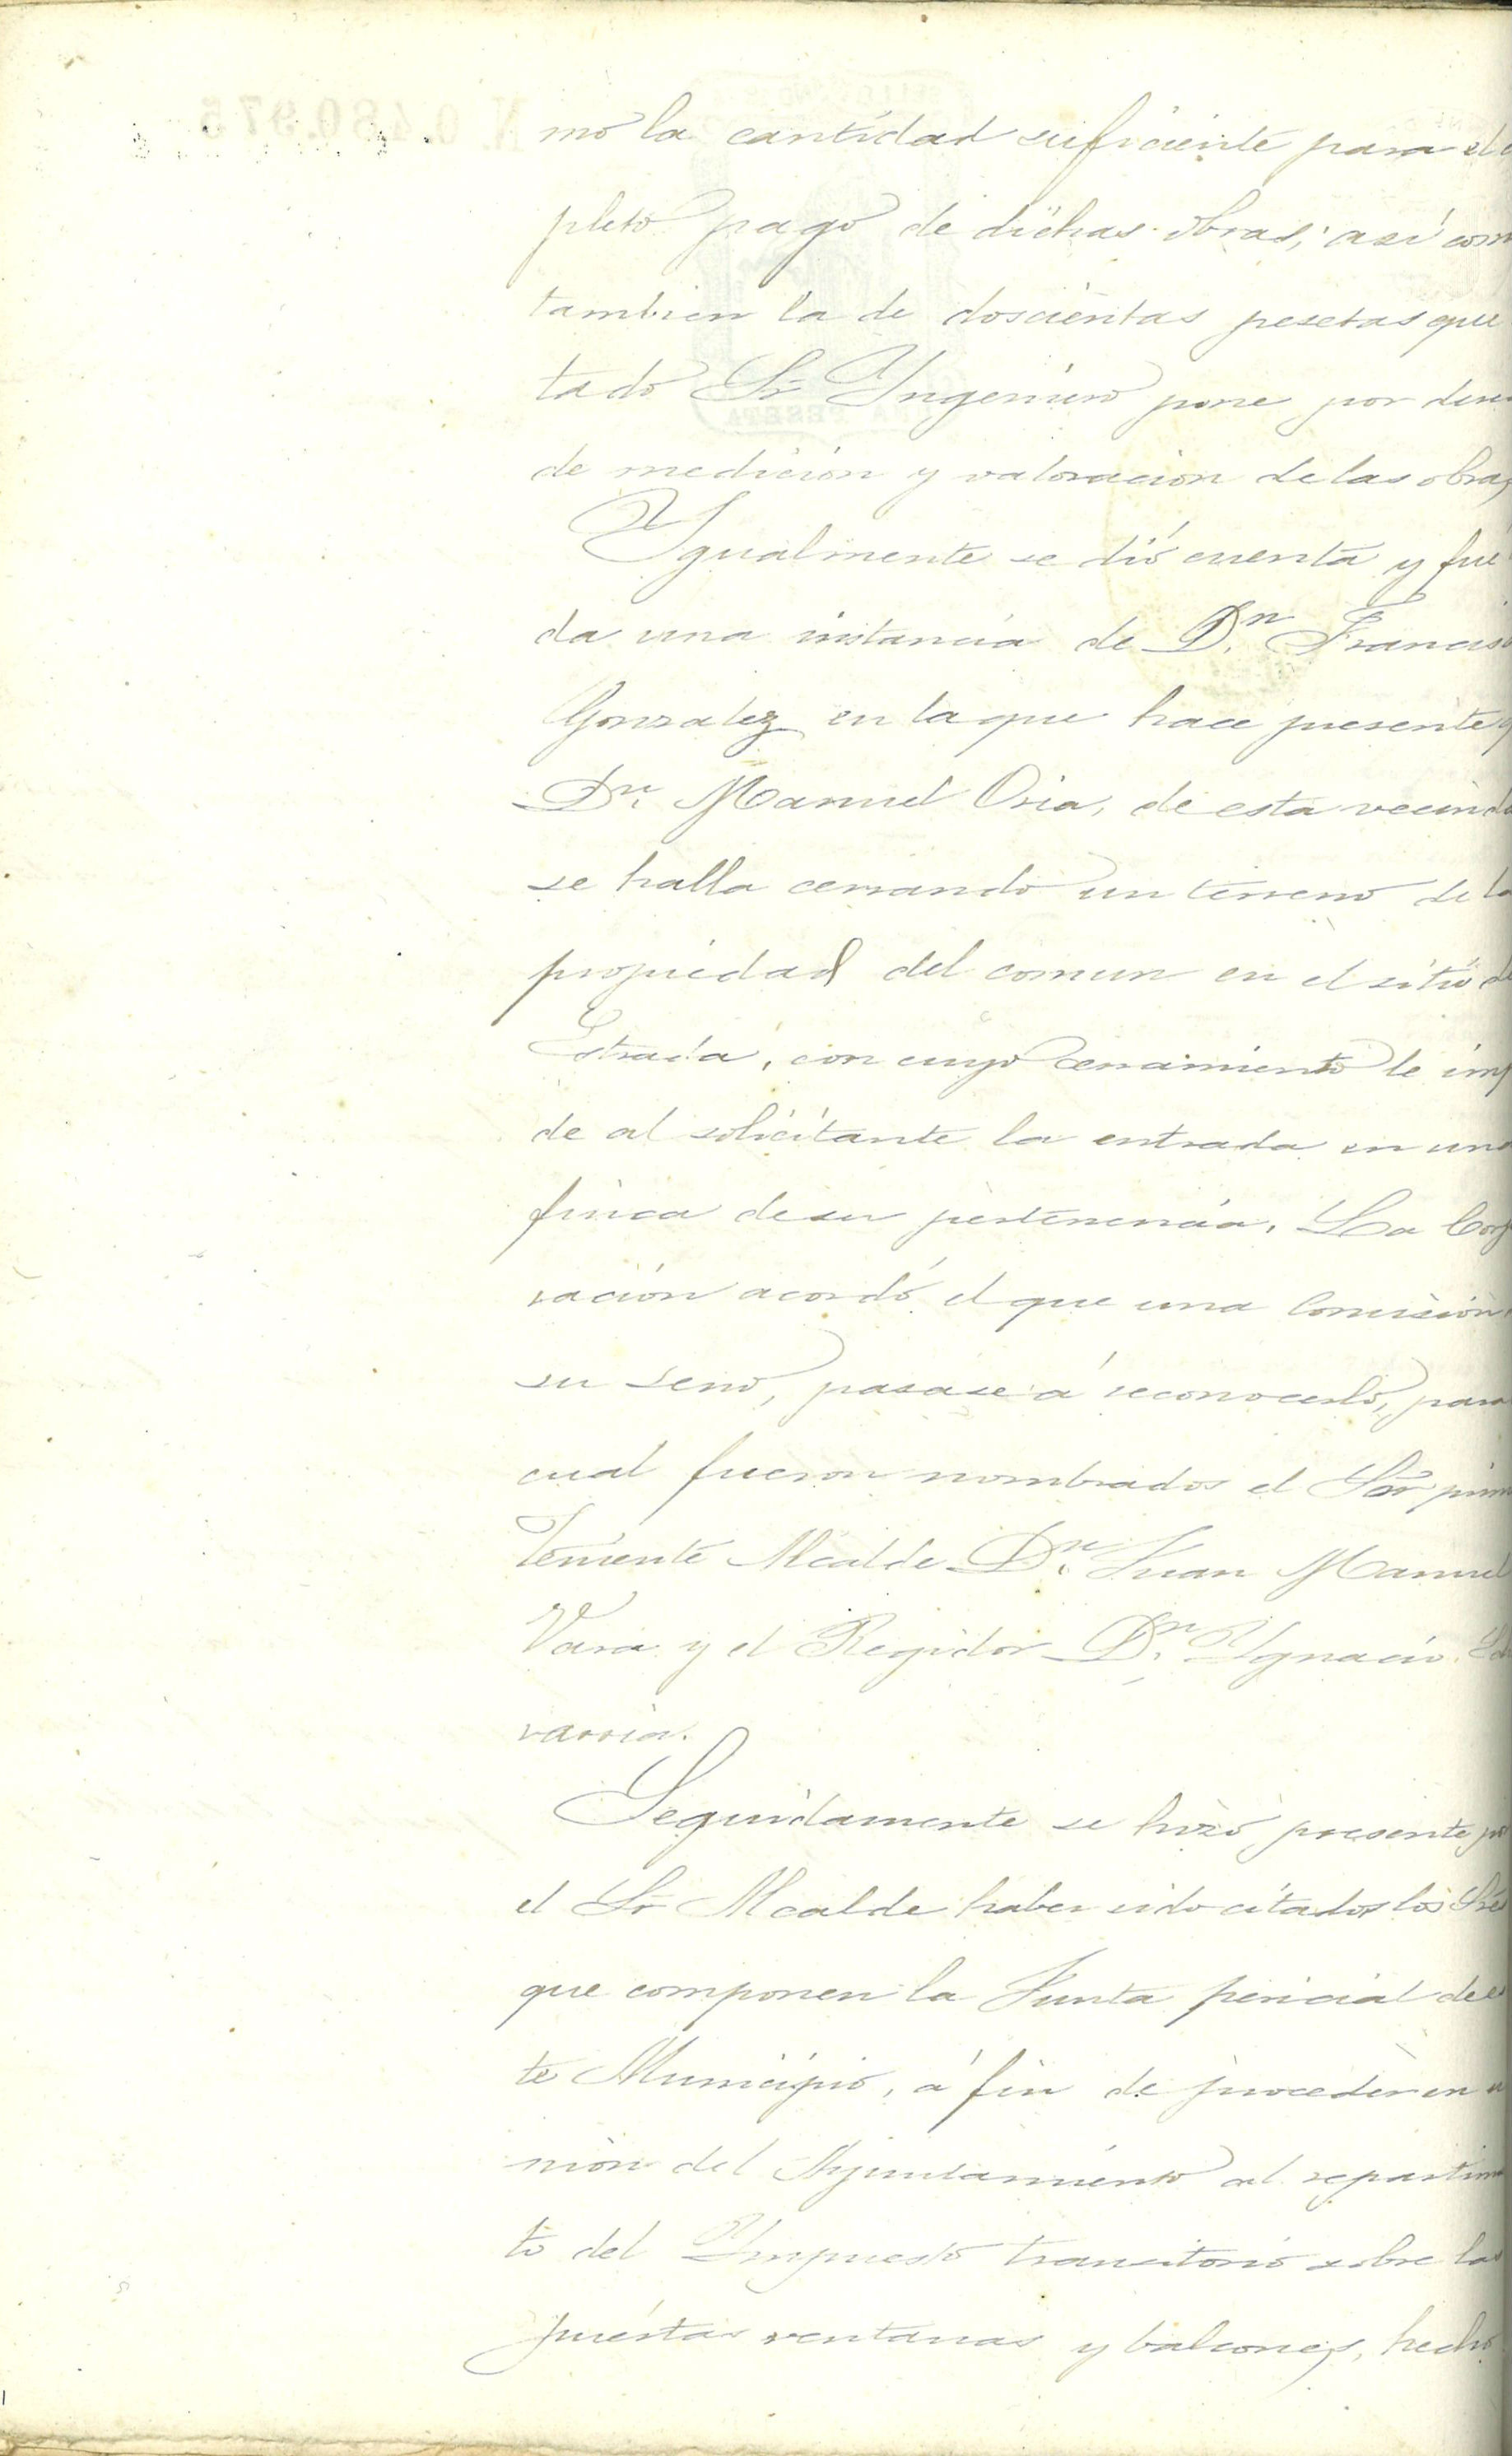 mo la cantidad suficiente para el
pleto pago de dichas obras; así com
tambien la de doscientas pesetas que
tado Sr Yngeniero pone por dere
de medicion y valoracion de las obras
Ygualmente se dió cuenta y fue
da una instancia de D.n Francis
Gonzalez en la que hace presente q
Dn. Manuel Oria, de esta vecinda
se halla cerrando un terreno de la
propiedad del comun en el sitio de
Estrada, con cuyo cerramiento le imp
de al solicitante la entrada en una
finca de su pertenencia. La Corp
ración acordó el que una Comision
su seno, pasase á reconocerlo, para
cual fueron nombrados el Sor prim
Teniente Alcalde Dn. Juan Manuel
Vara y el Regidor Dn. Ygnacio
varria.
Seguidamente se hizo presente po
el Sr Alcalde haber sido citados los Sres
que componen la Junta pericial de es
te Municipio, á fin de proceder en u
nion del Ayuntamiento al repartim
to del Ympuesto transitorio sobre las
puertas ventanas y balcones, hecho
N. 0.480.975
UNA PESETA